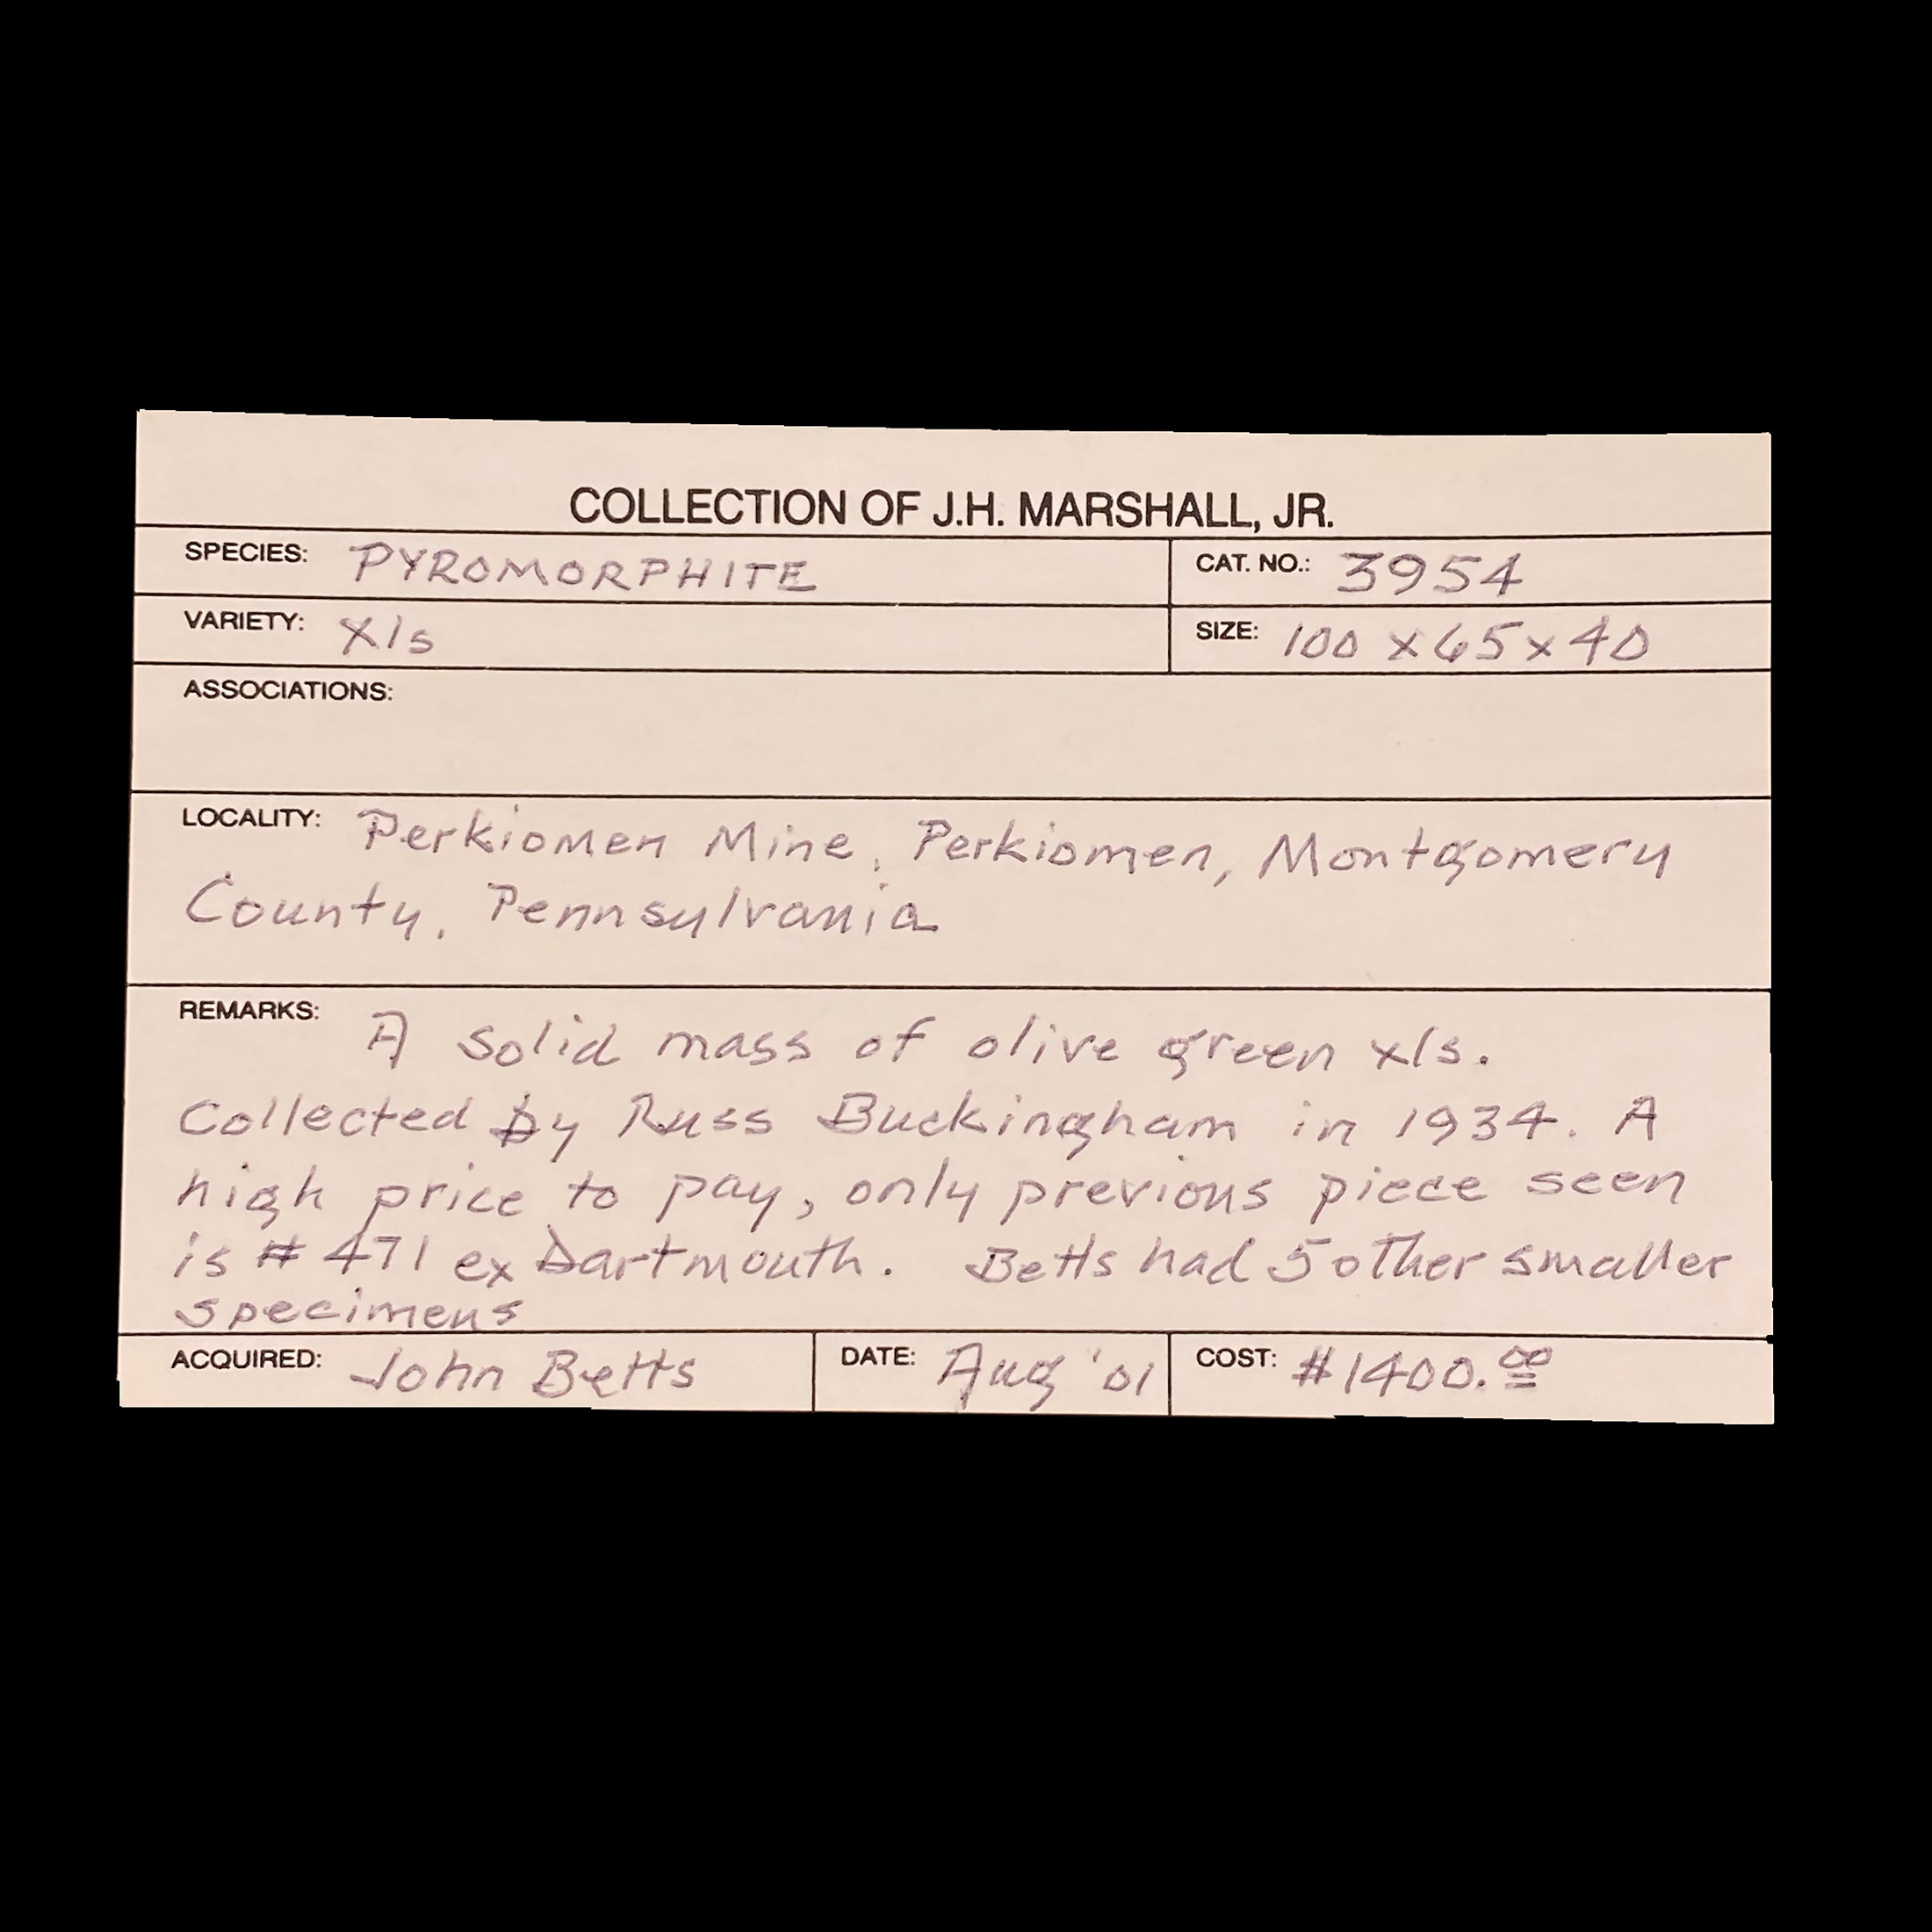 COLLECTION OF J.H. MARSHALL, JR.
SPECIES: PYROMORPHITE CAT. NO.: 3954
VARIETY: Xls SIZE: 100 x 65 x 40
ASSOCIATIONS:
LOCALITY: Perkiomen Mine, Perkiomen, Montgomery
County, Pennsylvania
REMARKS: A solid mass of olive green xls.
Collected by Russ Buckingham in 1934. A
high price to pay, only previous piece seen
is # 471 ex Dartmouth. Betts had 5 other smaller
specimens
ACQUIRED: John Betts DATE: Aug '01 COST: $1400.00